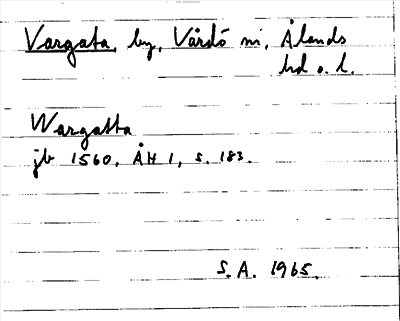 Vargata, by, Vårdö sn, Ålands
hd o. l.
Wargatta
jb 1560. ÅH 1, s. 183.
S.A. 1965.